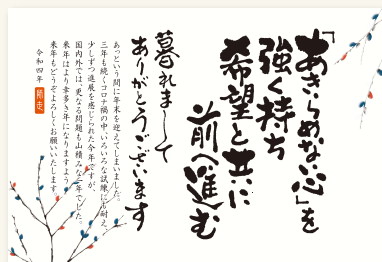 「あきらめない心」を
強く持ち
希望と共に
前へ進む
暮れまして
ありがとうございます
あっという間に年末を迎えてしまいました。
三年も続くコロナ禍の中、いろいろな試練にも耐え、
少しずつ進展を感じられた今年ですが、
国内外では、更なる問題も山積みな一年でした。
来年はより幸多き年になりますよう
来年もどうぞよろしくお願いいたします。
令和四年 師走